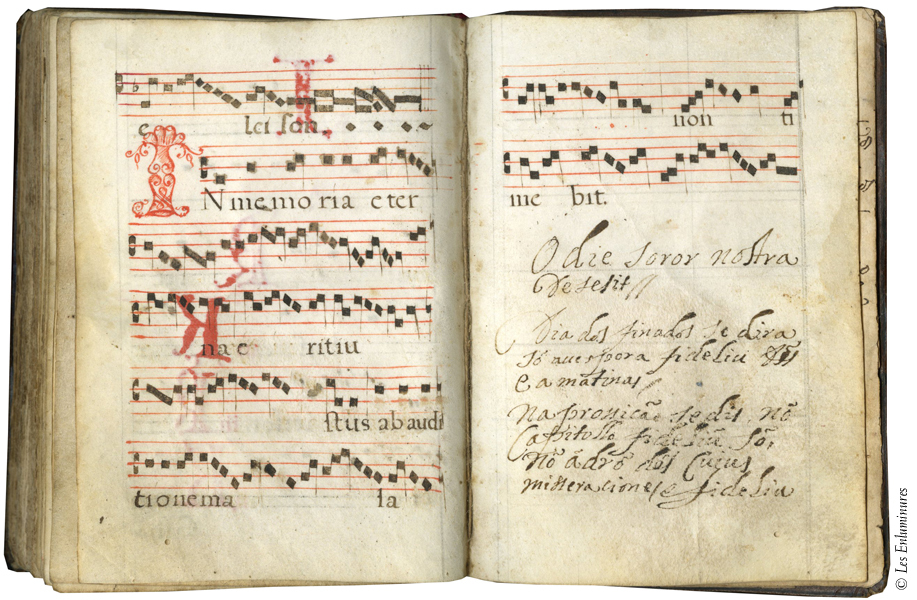 e lei son
IN memoria e ter
na e ritiu
stus ab audi
tione ma la
non ti
me bit.
O die soror nostra
Desesit
Dia dos finados se dira
so auespora fideliu
e a matinas
Na prossicaõ se dis nõ
Capitollo fideliũ sõ,
Nõ ádrõ dos Cuius
misseracione e fideliu
© Les Enluminures